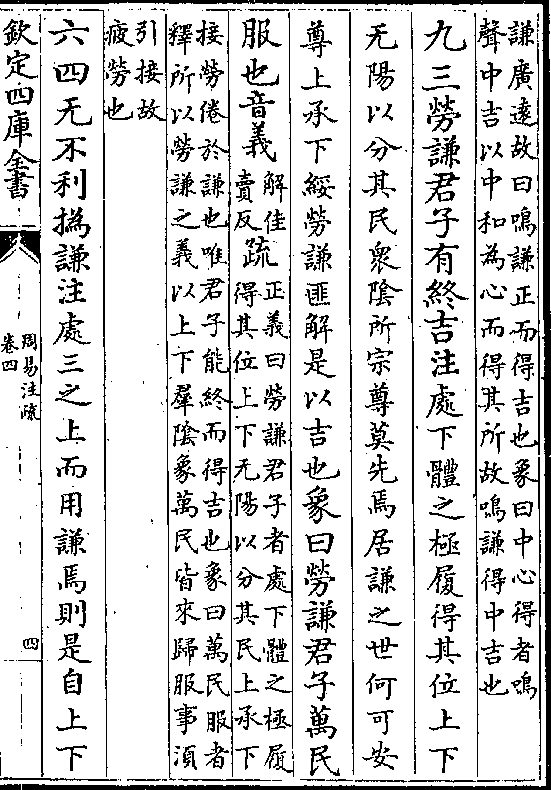 謙廣遠故曰鳴謙正而得吉也象曰中心得者鳴
聲中吉以中和為心而得其所故鳴謙得中吉也
九三勞謙君子有終吉注處下體之極履得其位上下
无陽以分其民衆陰所宗尊莫先焉居謙之世何可安
尊上承下綏勞謙匪解是以吉也象曰勞謙君子萬民
服也音義解佳
賣反疏正義曰勞謙君子者處下體之極履
得其位上下无陽以分其民上承下
接勞倦於謙也唯君子能終而得吉也象曰萬民服者
釋所以勞謙之義以上下羣陰象萬民皆來歸服事須
引接故
疲勞也
六四无不利撝謙注處三之上而用謙焉則是自上下
欽定四庫全書
周易注疏
卷四
四